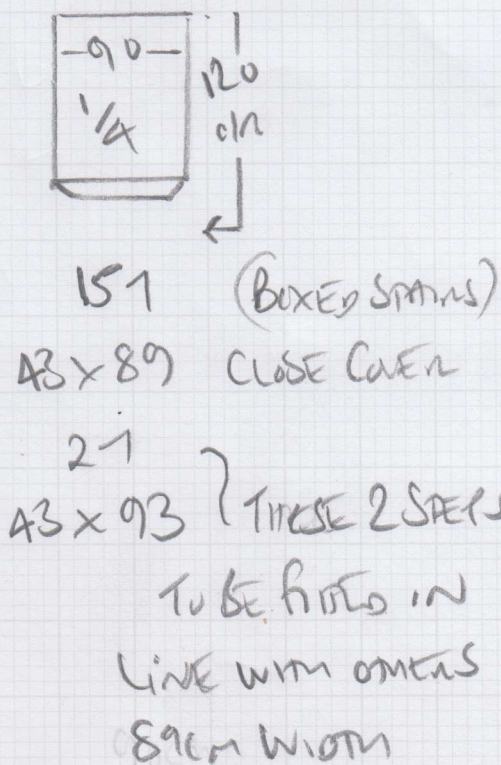 90
120
1/4
151 (BOXED STAIRS)
43 x 89 CLOSE COVER
21
43 x 93 } THESE 2 STEPS
TO BE FITTED IN
LINE WITH OTHERS
89cm WIDTH